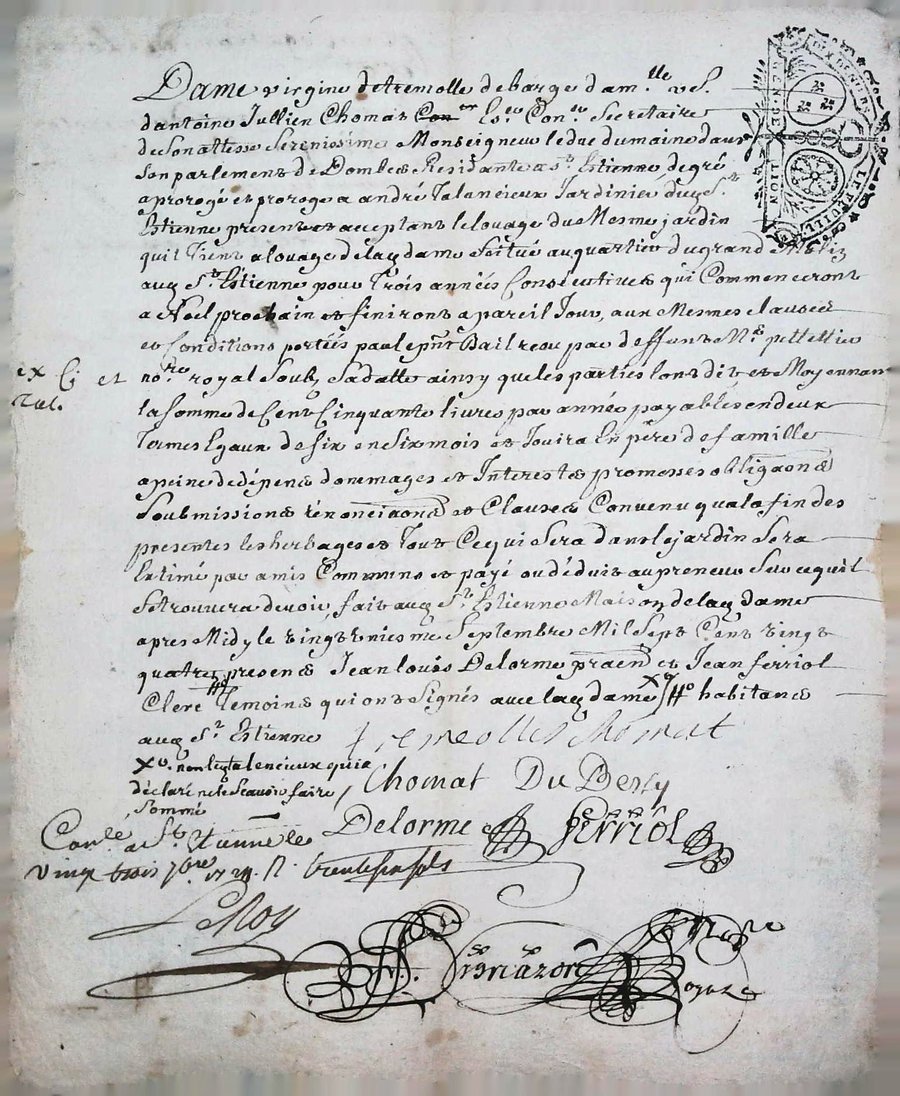 GEN. DE LION
DIX DENIERS
LE FEUILL.
Dame virgine detremolle debarge dam.lle ve S.
dantoine Jullien Chomat Es.er Con.er Secretaire
de Son attesse Serenissime Monseigneur leduc dumaine dans
Son parlement de Dombes Residante a S.t Estienne degré
a prorogé et proroge a andré Talancieux Jardinier dud S.t
Estienne present et acceptant lelouage du Mesme jardin
quil Tient a louage delad dame Scitué auquartier dugrand
aud S.t Estienne pour Trois années Consecutives qui Commenceront
a Noel prochain et finiront a pareil Jour, aux Mesmes clauses
et Conditions portées par le pnt Bail reçu par deffunt M.e pellettier
ex Cj et
no.re royal Soubz Sa datte ainsy que les parties l'ont dit et Moyennant
la Somme de Cent Cinquante livres par année payables en deux
Termes Egaux de Six en Six mois et Jouira En père de famille
a peine de dépens dommages et Interests promesses obligaons
Soubmissions rénonciaons et Clauses Convenu qu'a la fin des
presentes les herbages et Tout Ce qui Sera dans le jardin Sera
Estimé par amis Communs et payé ou déduit au preneur Sur ce quil
Se trouvera devoir, fait aud S.t Estienne Maison de lad dame
apres Midy le vingt troisiesme Septembre Mil Sept Cent vingt
quatre, presens Jean louis Delorme praen et Jean ferriol
Clerc Temoins qui ont Signés avec lad dame habitans
aud S.t Estienne
tremolles chomat
non led talencieux qui a
déclaré ne le Scavoir faire
Sommé
Chomat Du
Delorme
ferriol
Con.le a St. Etienne le
Vingt trois 7bre 1724 R. trente six sols
LeRoy